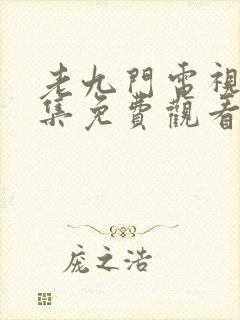 老九門電視
集免費觀看
庞之浩